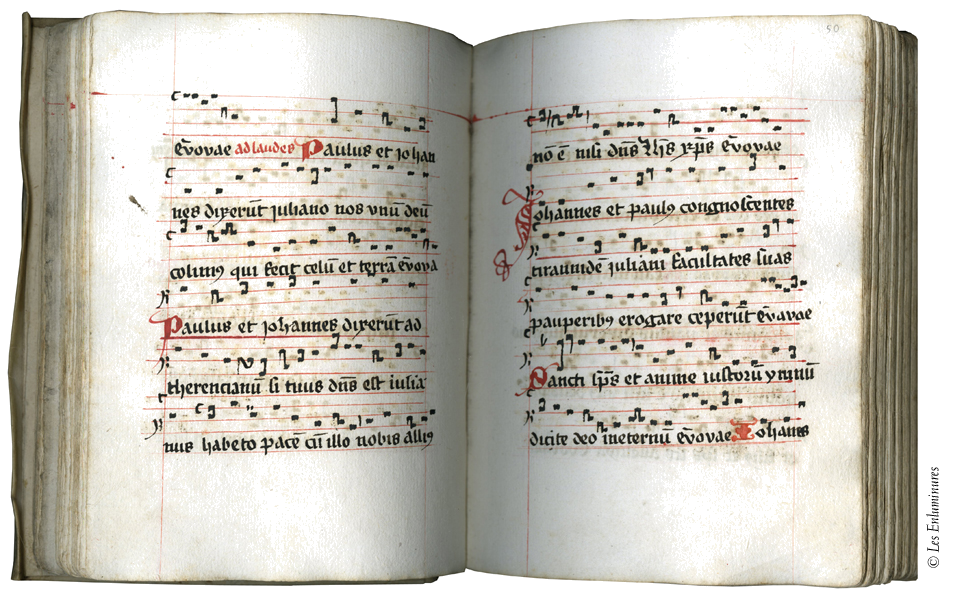 ēvovae ad laudes Paulus et johan
nes dixerūt juliano nos vnū deū
colim⁹ qui fecit celū et terrā ēvova
Paulus et johannes dixerūt ad
therencianū si tuus dn̄s est julia
nus habeto pacē cū illo nobis ali⁹
50
nō ē nisi dn̄s ih̄s xp̄s ēvovae
Johannes et paul⁹ congnoscentes
tirannidē juliani facultates suas
pauperib⁹ erogare ceperūt ēvovae
Sancti sp̄s et anime iustorū ymnū
dicite deo ineternū ēvovae Johanes
© Les Enluminures